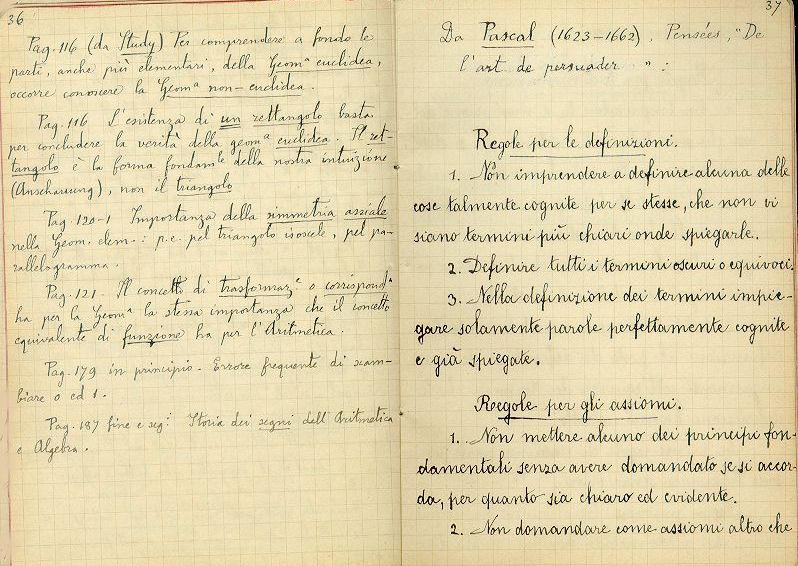 36
Pag. 116 (da Study) Per comprendere a fondo le
parti, anche più elementari, della Geomª euclidea,
occorre conoscere la Geomª non-euclidea.
Pag. 116 L'esistenza di un rettangolo basta
per concludere la verità della geomª euclidea. Il ret-
tangolo è la forma fondamle della nostra intuizione
(Anschauung), non il triangolo
Pag. 120-1 Importanza della simmetria assiale
nella Geom. elem.: p.e. pel triangolo isoscele, pel pa-
rallelogramma.
Pag. 121. Il concetto di trasformaze o corrispondª
ha per la Geomª la stessa importanza che il concetto
equivalente di funzione ha per l'Aritmetica.
Pag. 179 in principio. Errore frequente di scam-
biare 0 ed 1.
Pag. 187 fine e segi Storia dei segni dell'Aritmetica
e Algebra.
37
Da Pascal (1623-1662). Pensées, "De
l'art de persuader":
Regole per le definizioni.
1. Non imprendere a definire alcuna delle
cose talmente cognite per se stesse, che non vi
siano termini più chiari onde spiegarle.
2. Definire tutti i termini oscuri o equivoci.
3. Nella definizione dei termini impie-
gare solamente parole perfettamente cognite
e già spiegate.
Regole per gli assiomi.
1. Non mettere alcuno dei principi fon-
damentali senza avere domandato se si accor-
da, per quanto sia chiaro ed evidente.
2. Non domandare come assiomi altro che